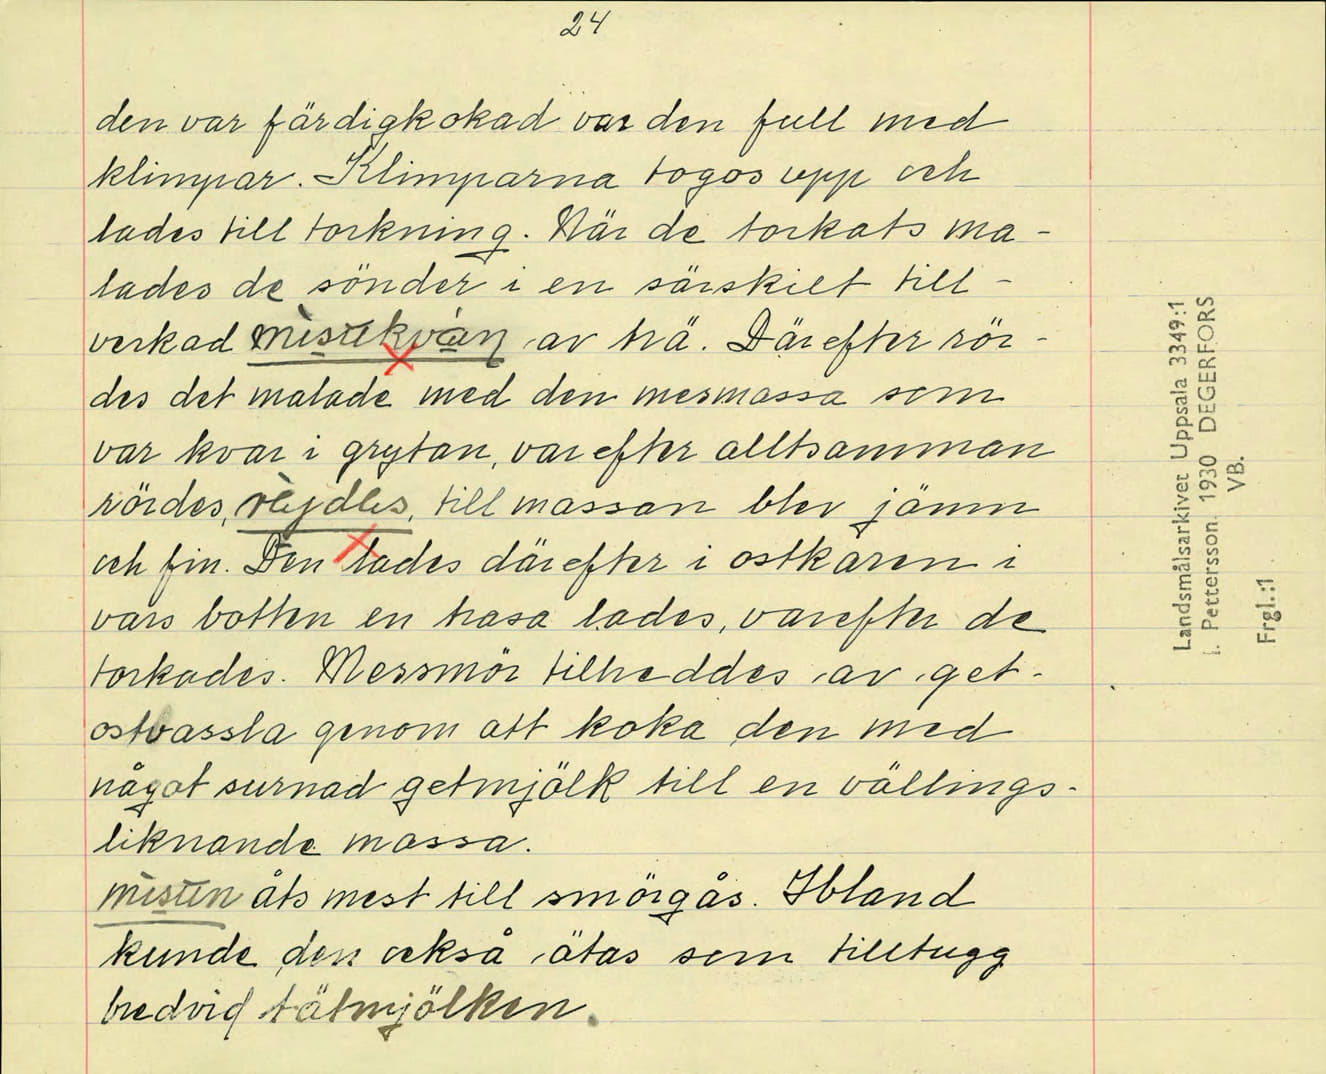 24
den var färdigkokad var den full med
klimpar. Klimparna togos upp och
lades till torkning. När de torkats ma-
lades de sönder i en särskilt till-
verkad av trä. Därefter rör-
des det malade med den mesmassa som
var kvar i grytan, varefter alltsamman
rördes, till massan blev jämn
och fin. Den lades därefter i ostkaren i
vars botten en trasa lades, varefter de
torkades. Messmör tillreddes av get-
ostvassla genom att koka den med
något surnad getmjölk till en vällings-
liknande massa.
åts mest till smörgås. Ibland
kunde den också ätas som tilltugg
bredvid tätmjölken.
Landsmålsarkivet Uppsala 3349:1
I. Pettersson. 1930 DEGERFORS
VB.
Frgl.:1